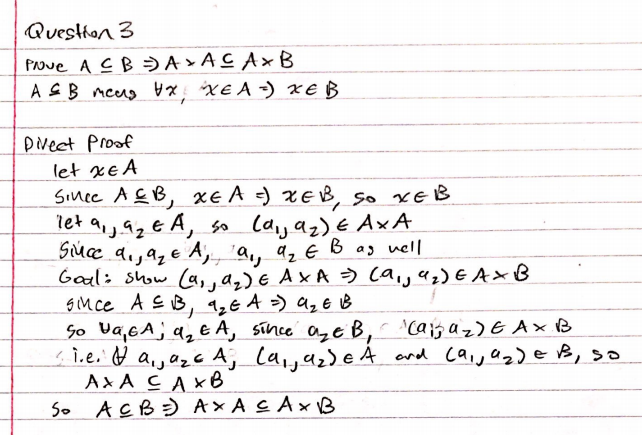 Question 3
Prove A ⊆ B ⇒ A × A ⊆ A × B
A ⊆ B means ∀x, x ∈ A ⇒ x ∈ B
Direct Proof
let x ∈ A
Since A ⊆ B, x ∈ A ⇒ x ∈ B, so x ∈ B
let a₁, a₂ ∈ A, so (a₁, a₂) ∈ A × A
Since a₁, a₂ ∈ A, a₁, a₂ ∈ B as well
Goal: show (a₁, a₂) ∈ A × A ⇒ (a₁, a₂) ∈ A × B
since A ⊆ B, a₂ ∈ A ⇒ a₂ ∈ B
so ∀a₁ ∈ A, a₂ ∈ A, since a₂ ∈ B, (a₁, a₂) ∈ A × B
i.e. ∀ a₁, a₂ ∈ A, (a₁, a₂) ∈ A and (a₁, a₂) ∈ B, so
A × A ⊆ A × B
So A ⊆ B ⇒ A × A ⊆ A × B